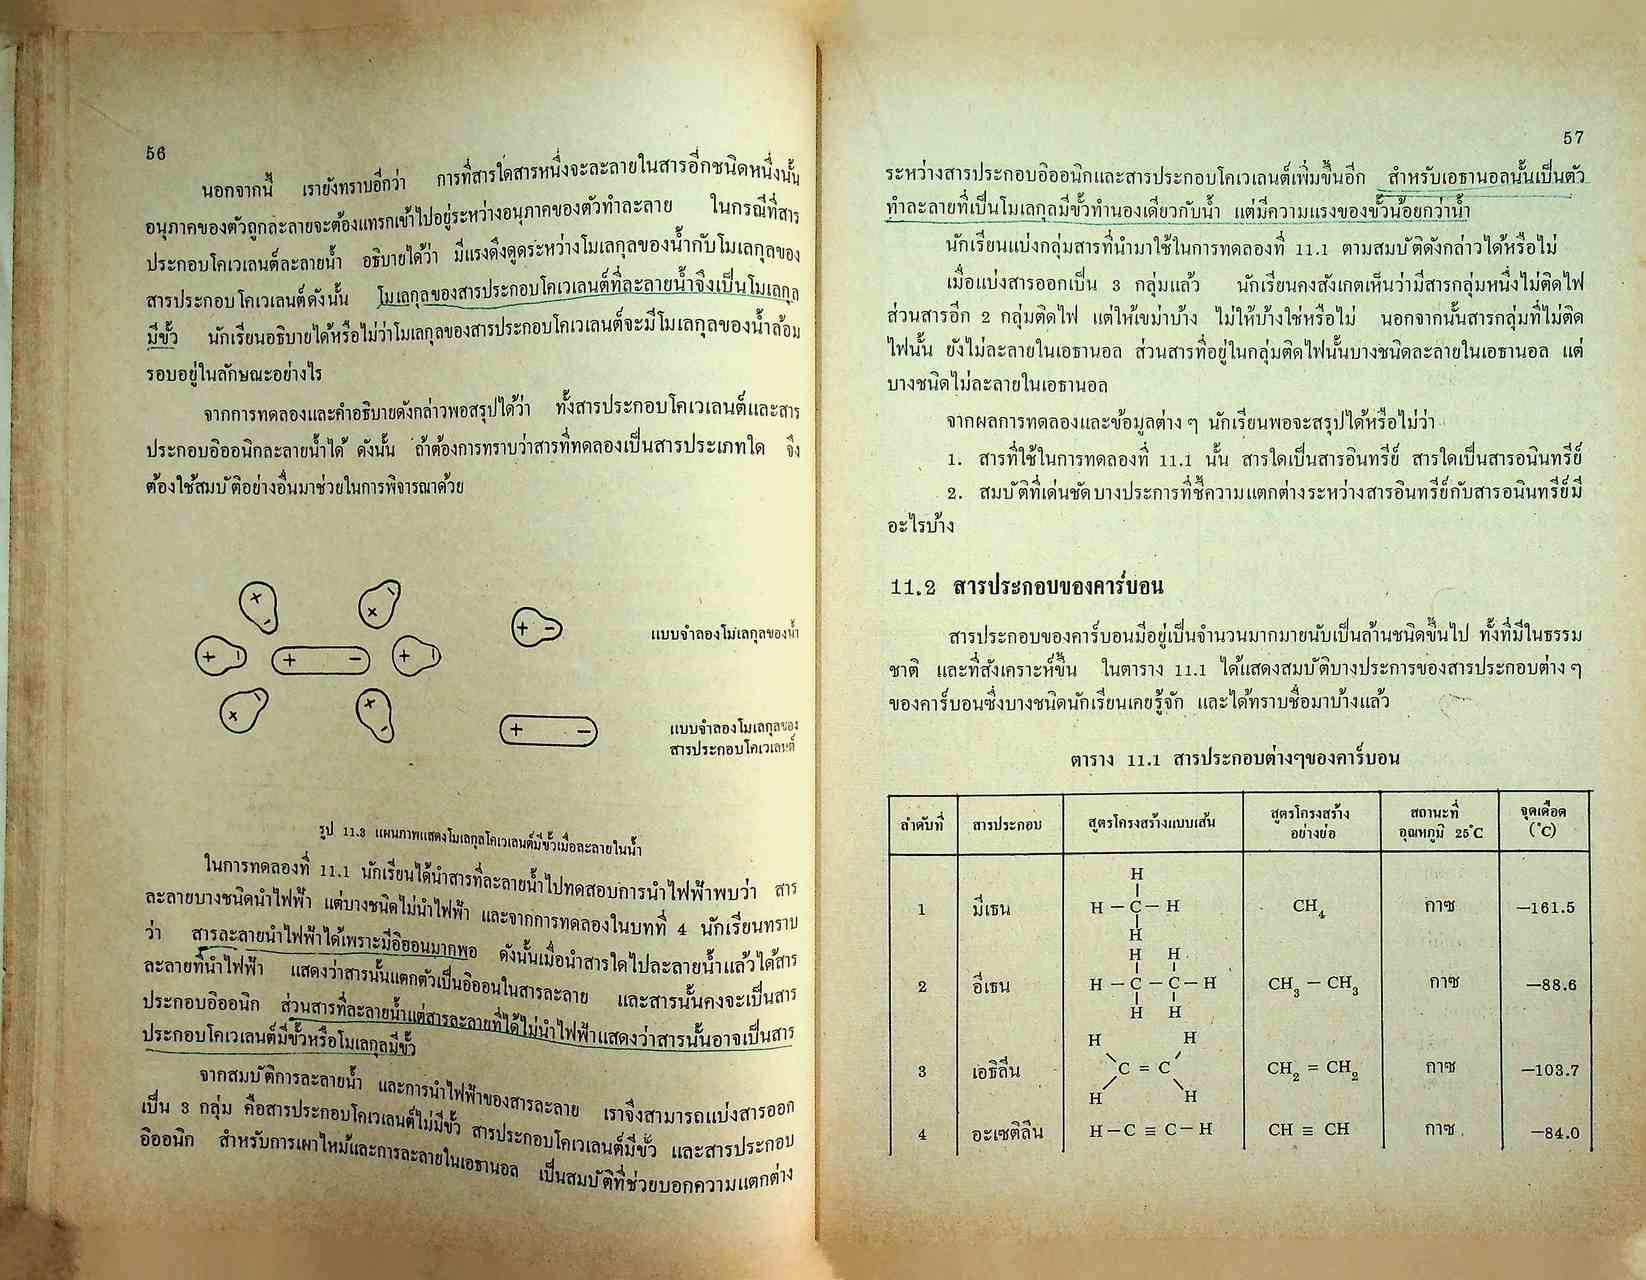 56
นอกจากนี้ เรายังทราบอีกว่า การที่สารใดสารหนึ่งจะละลายในสารอีกชนิดหนึ่งนั้น
อนุภาคของตัวถูกละลายจะต้องแทรกเข้าไปอยู่ระหว่างอนุภาคของตัวทำละลาย ในกรณีที่สาร
ประกอบโคเวเลนต์ละลายน้ำ อธิบายได้ว่า มีแรงดึงดูดระหว่างโมเลกุลของน้ำกับโมเลกุลของ
สารประกอบโคเวเลนต์ดังนั้น โมเลกุลของสารประกอบโคเวเลนต์ที่ละลายน้ำจึงเป็นโมเลกุล
มีขั้ว นักเรียนอธิบายได้หรือไม่ว่าโมเลกุลของสารประกอบโคเวเลนต์จะมีโมเลกุลของน้ำล้อม
รอบอยู่ในลักษณะอย่างไร
จากการทดลองและคำอธิบายดังกล่าวพอสรุปได้ว่า ทั้งสารประกอบโคเวเลนต์และสาร
ประกอบอิออนิกละลายน้ำได้ ดังนั้น ถ้าต้องการทราบว่าสารที่ทดลองเป็นสารประเภทใด จึง
ต้องใช้สมบัติอย่างอื่นมาช่วยในการพิจารณาด้วย
+ − + −
+ − + − + − + − แบบจำลองโมเลกุลของน้ำ
+ − + −
+ − แบบจำลองโมเลกุลของ
สารประกอบโคเวเลนต์
รูป 11.3 แผนภาพแสดงโมเลกุลโคเวเลนต์มีขั้วเมื่อละลายในน้ำ
ในการทดลองที่ 11.1 นักเรียนได้นำสารที่ละลายน้ำไปทดสอบการนำไฟฟ้าพบว่า สาร
ละลายบางชนิดนำไฟฟ้า แต่บางชนิดไม่นำไฟฟ้า และจากการทดลองในบทที่ 4 นักเรียนทราบ
ว่า สารละลายนำไฟฟ้าได้เพราะมีอิออนมากพอ ดังนั้นเมื่อนำสารใดไปละลายน้ำแล้วได้สาร
ละลายที่นำไฟฟ้า แสดงว่าสารนั้นแตกตัวเป็นอิออนในสารละลาย และสารนั้นคงจะเป็นสาร
ประกอบอิออนิก ส่วนสารที่ละลายน้ำแต่สารละลายที่ได้ไม่นำไฟฟ้าแสดงว่าสารนั้นอาจเป็นสาร
ประกอบโคเวเลนต์มีขั้วหรือโมเลกุลมีขั้ว
จากสมบัติการละลายน้ำ และการนำไฟฟ้าของสารละลาย เราจึงสามารถแบ่งสารออก
เป็น 3 กลุ่ม คือสารประกอบโคเวเลนต์ไม่มีขั้ว สารประกอบโคเวเลนต์มีขั้ว และสารประกอบ
อิออนิก สำหรับการเผาไหม้และการละลายในเอธานอล เป็นสมบัติที่ช่วยบอกความแตกต่าง
57
ระหว่างสารประกอบอิออนิกและสารประกอบโคเวเลนต์เพิ่มขึ้นอีก สำหรับเอธานอลนั้นเป็นตัว
ทำละลายที่เป็นโมเลกุลมีขั้วทำนองเดียวกับน้ำ แต่มีความแรงของขั้วน้อยกว่าน้ำ
นักเรียนแบ่งกลุ่มสารที่นำมาใช้ในการทดลองที่ 11.1 ตามสมบัติดังกล่าวได้หรือไม่
เมื่อแบ่งสารออกเป็น 3 กลุ่มแล้ว นักเรียนคงสังเกตเห็นว่ามีสารกลุ่มหนึ่งไม่ติดไฟ
ส่วนสารอีก 2 กลุ่มติดไฟ แต่ให้เขม่าบ้าง ไม่ให้บ้างใช่หรือไม่ นอกจากนั้นสารกลุ่มที่ไม่ติด
ไฟนั้น ยังไม่ละลายในเอธานอล ส่วนสารที่อยู่ในกลุ่มติดไฟนั้นบางชนิดละลายในเอธานอล แต่
บางชนิดไม่ละลายในเอธานอล
จากผลการทดลองและข้อมูลต่าง ๆ นักเรียนพอจะสรุปได้หรือไม่ว่า
1. สารที่ใช้ในการทดลองที่ 11.1 นั้น สารใดเป็นสารอินทรีย์ สารใดเป็นสารอนินทรีย์
2. สมบัติที่เด่นชัดบางประการที่ชี้ความแตกต่างระหว่างสารอินทรีย์กับสารอนินทรีย์มี
อะไรบ้าง
11.2 สารประกอบของคาร์บอน
สารประกอบของคาร์บอนมีอยู่เป็นจำนวนมากมายนับเป็นล้านชนิดขึ้นไป ทั้งที่มีในธรรม
ชาติ และที่สังเคราะห์ขึ้น ในตาราง 11.1 ได้แสดงสมบัติบางประการของสารประกอบต่าง ๆ
ของคาร์บอนซึ่งบางชนิดนักเรียนเคยรู้จัก และได้ทราบชื่อมาบ้างแล้ว
ตาราง 11.1 สารประกอบต่างๆของคาร์บอน
ลำดับที่ สารประกอบ สูตรโครงสร้างแบบเส้น สูตรโครงสร้าง
อย่างย่อ สถานะที่
อุณหภูมิ 25°C จุดเดือด
(°C)
H
1 มีเธน H − C − H CH₄ กาซ −161.5
H
H H
2 อีเธน H − C − C − H CH₃ − CH₃ กาซ −88.6
H H
H H
3 เอธิลีน C = C CH₂ = CH₂ กาซ −103.7
H H
4 อะเซติลีน H − C ≡ C − H CH ≡ CH กาซ −84.0